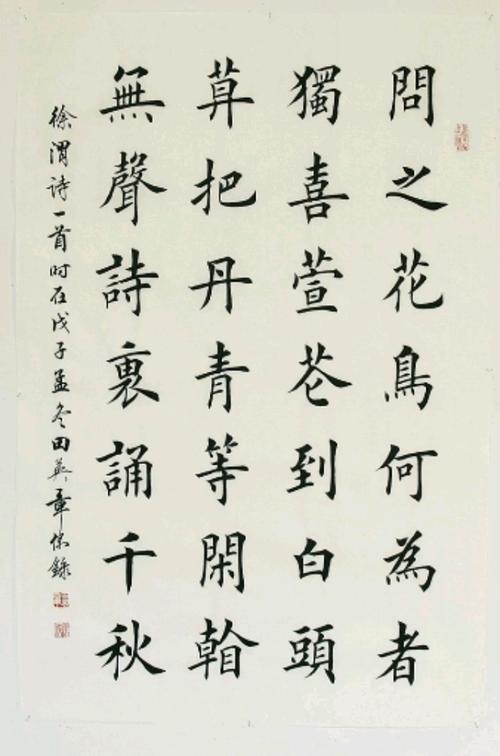 問之花鳥何為者
獨喜萱芲到白頭
莫把丹青等閑看
無聲詩裏誦千秋
徐渭詩一首时在戊子孟冬田英章恭錄